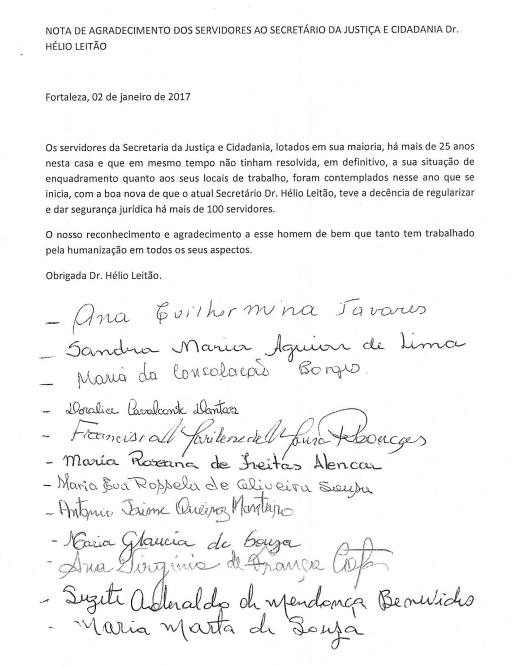 NOTA DE AGRADECIMENTO DOS SERVIDORES AO SECRETÁRIO DA JUSTIÇA E CIDADANIA Dr.
HÉLIO LEITÃO
Fortaleza, 02 de janeiro de 2017
Os servidores da Secretaria da Justiça e Cidadania, lotados em sua maioria, há mais de 25 anos
nesta casa e que em mesmo tempo não tinham resolvida, em definitivo, a sua situação de
enquadramento quanto aos seus locais de trabalho, foram contemplados nesse ano que se
inicia, com a boa nova de que o atual Secretário Dr. Hélio Leitão, teve a decência de regularizar
e dar segurança jurídica há mais de 100 servidores.
O nosso reconhecimento e agradecimento a esse homem de bem que tanto tem trabalhado
pela humanização em todos os seus aspectos.
Obrigada Dr. Hélio Leitão.
- Ana Guilhermina Tavares
- Sandra Maria Aguiar de Lima
- Maria da Consolação Borges.
- Doralice Cavalcante Dantas
- Francisca Marilene de Moura
- Maria Roseana de Freitas Alencar
- Maria Eva Rossela de Oliveira Sousa
- Antonio Jaime Queiroz Monteiro
- Maria Glaucia de Souza
- Ana Virgínia de França
- Suzete Aderaldo de Mendonça Benevides
- Maria Marta de Souza